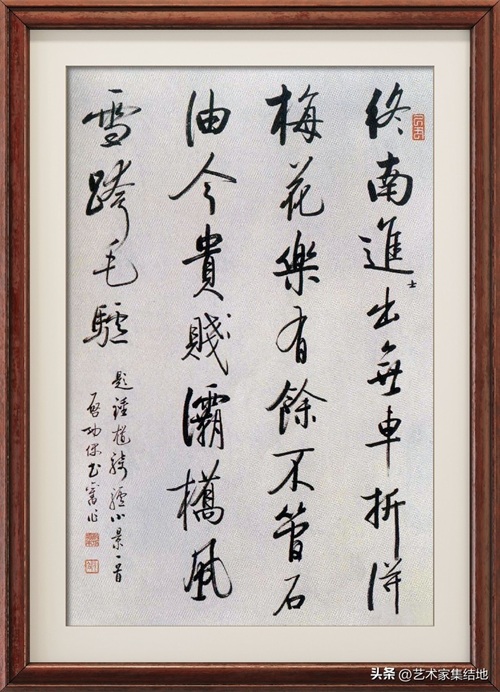 終南進士出無車折得
梅花樂有餘不管石
由今貴賤灞橋風
雪跨毛驢
題鍾馗騎驢小景一首
啓功 舊作
头条 @艺术家集结地